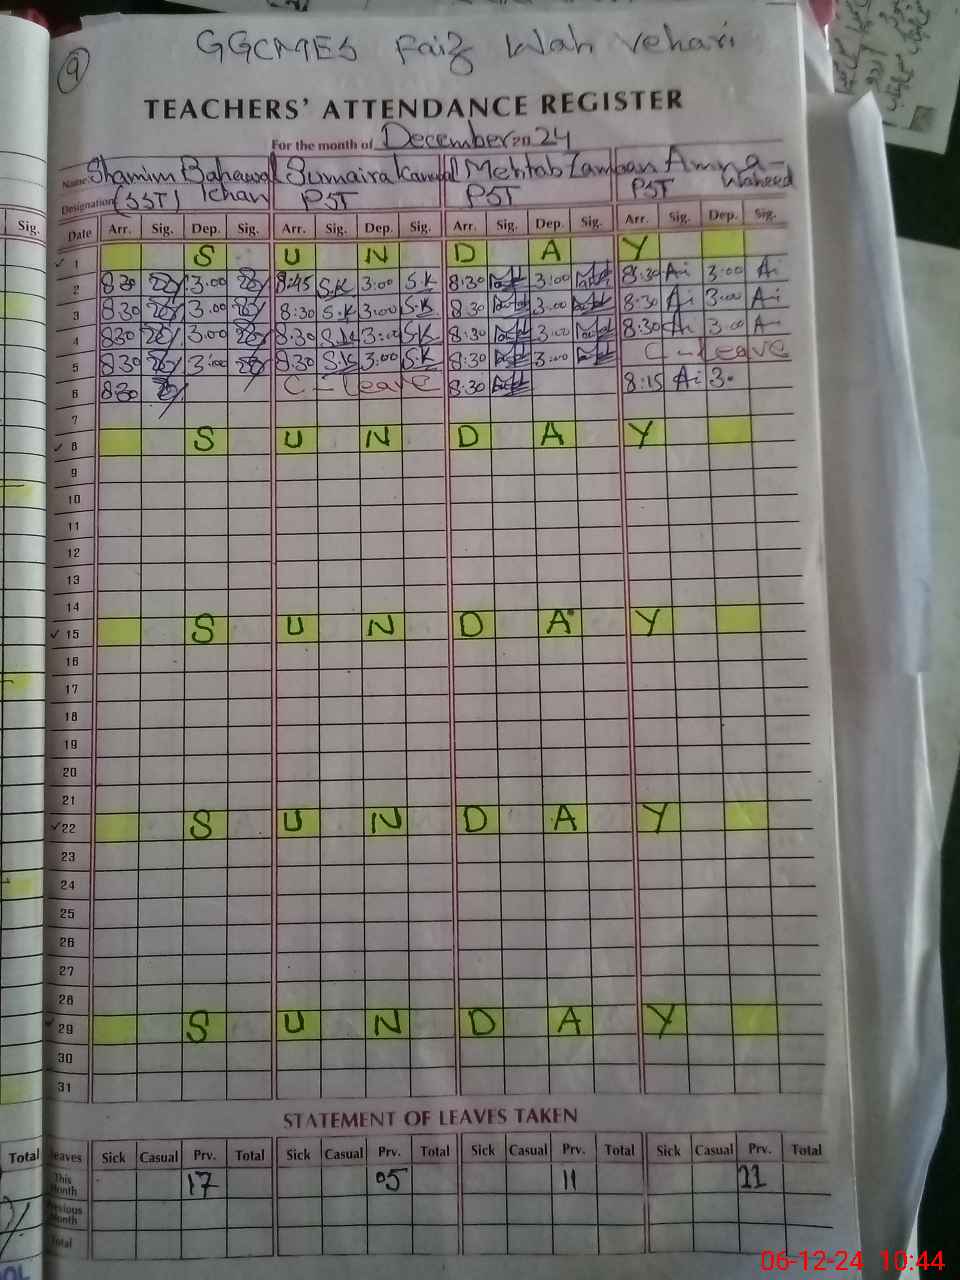 9
GGCMES Faiz Wah Vehari
TEACHERS' ATTENDANCE REGISTER
For the month of December 2024
Name: Shamim Bahawal Khan Sumaira Kanwal Mehtab Zaman Amna Waheed
Designation (SST) PST PST PST
Date Arr. Sig. Dep. Sig. Arr. Sig. Dep. Sig. Arr. Sig. Dep. Sig. Arr. Sig. Dep. Sig.
✓ 1 S U N D A Y
2 830 3.00 8:45 S.K 3:00 S.K 8:30 3:00 8:30 Ai 3:00 Ai
3 830 3.00 8:30 S.K 3:00 S.K 8.30 3.00 8:30 Ai 3:00 Ai
4 830 3.00 8.30 S.K 3:00 S.K 8:30 3:00 8:30 Ai 3:00 A
5 830 3:00 830 S.K 3:00 S.K 8:30 3:00 C-leave
6 830 C-leave 8:30 8:15 Ai 3.
7
✓ 8 S U N D A Y
9
10
11
12
13
14
✓ 15 S U N D A Y
16
17
18
19
20
21
✓ 22 S U N D A Y
23
24
25
26
27
28
✓ 29 S U N D A Y
30
31
STATEMENT OF LEAVES TAKEN
Leaves Sick Casual Prv. Total Sick Casual Prv. Total Sick Casual Prv. Total Sick Casual Prv. Total
This Month 17 05 11 11
Previous Month
Total
Sig.
Total
06-12-24 10:44